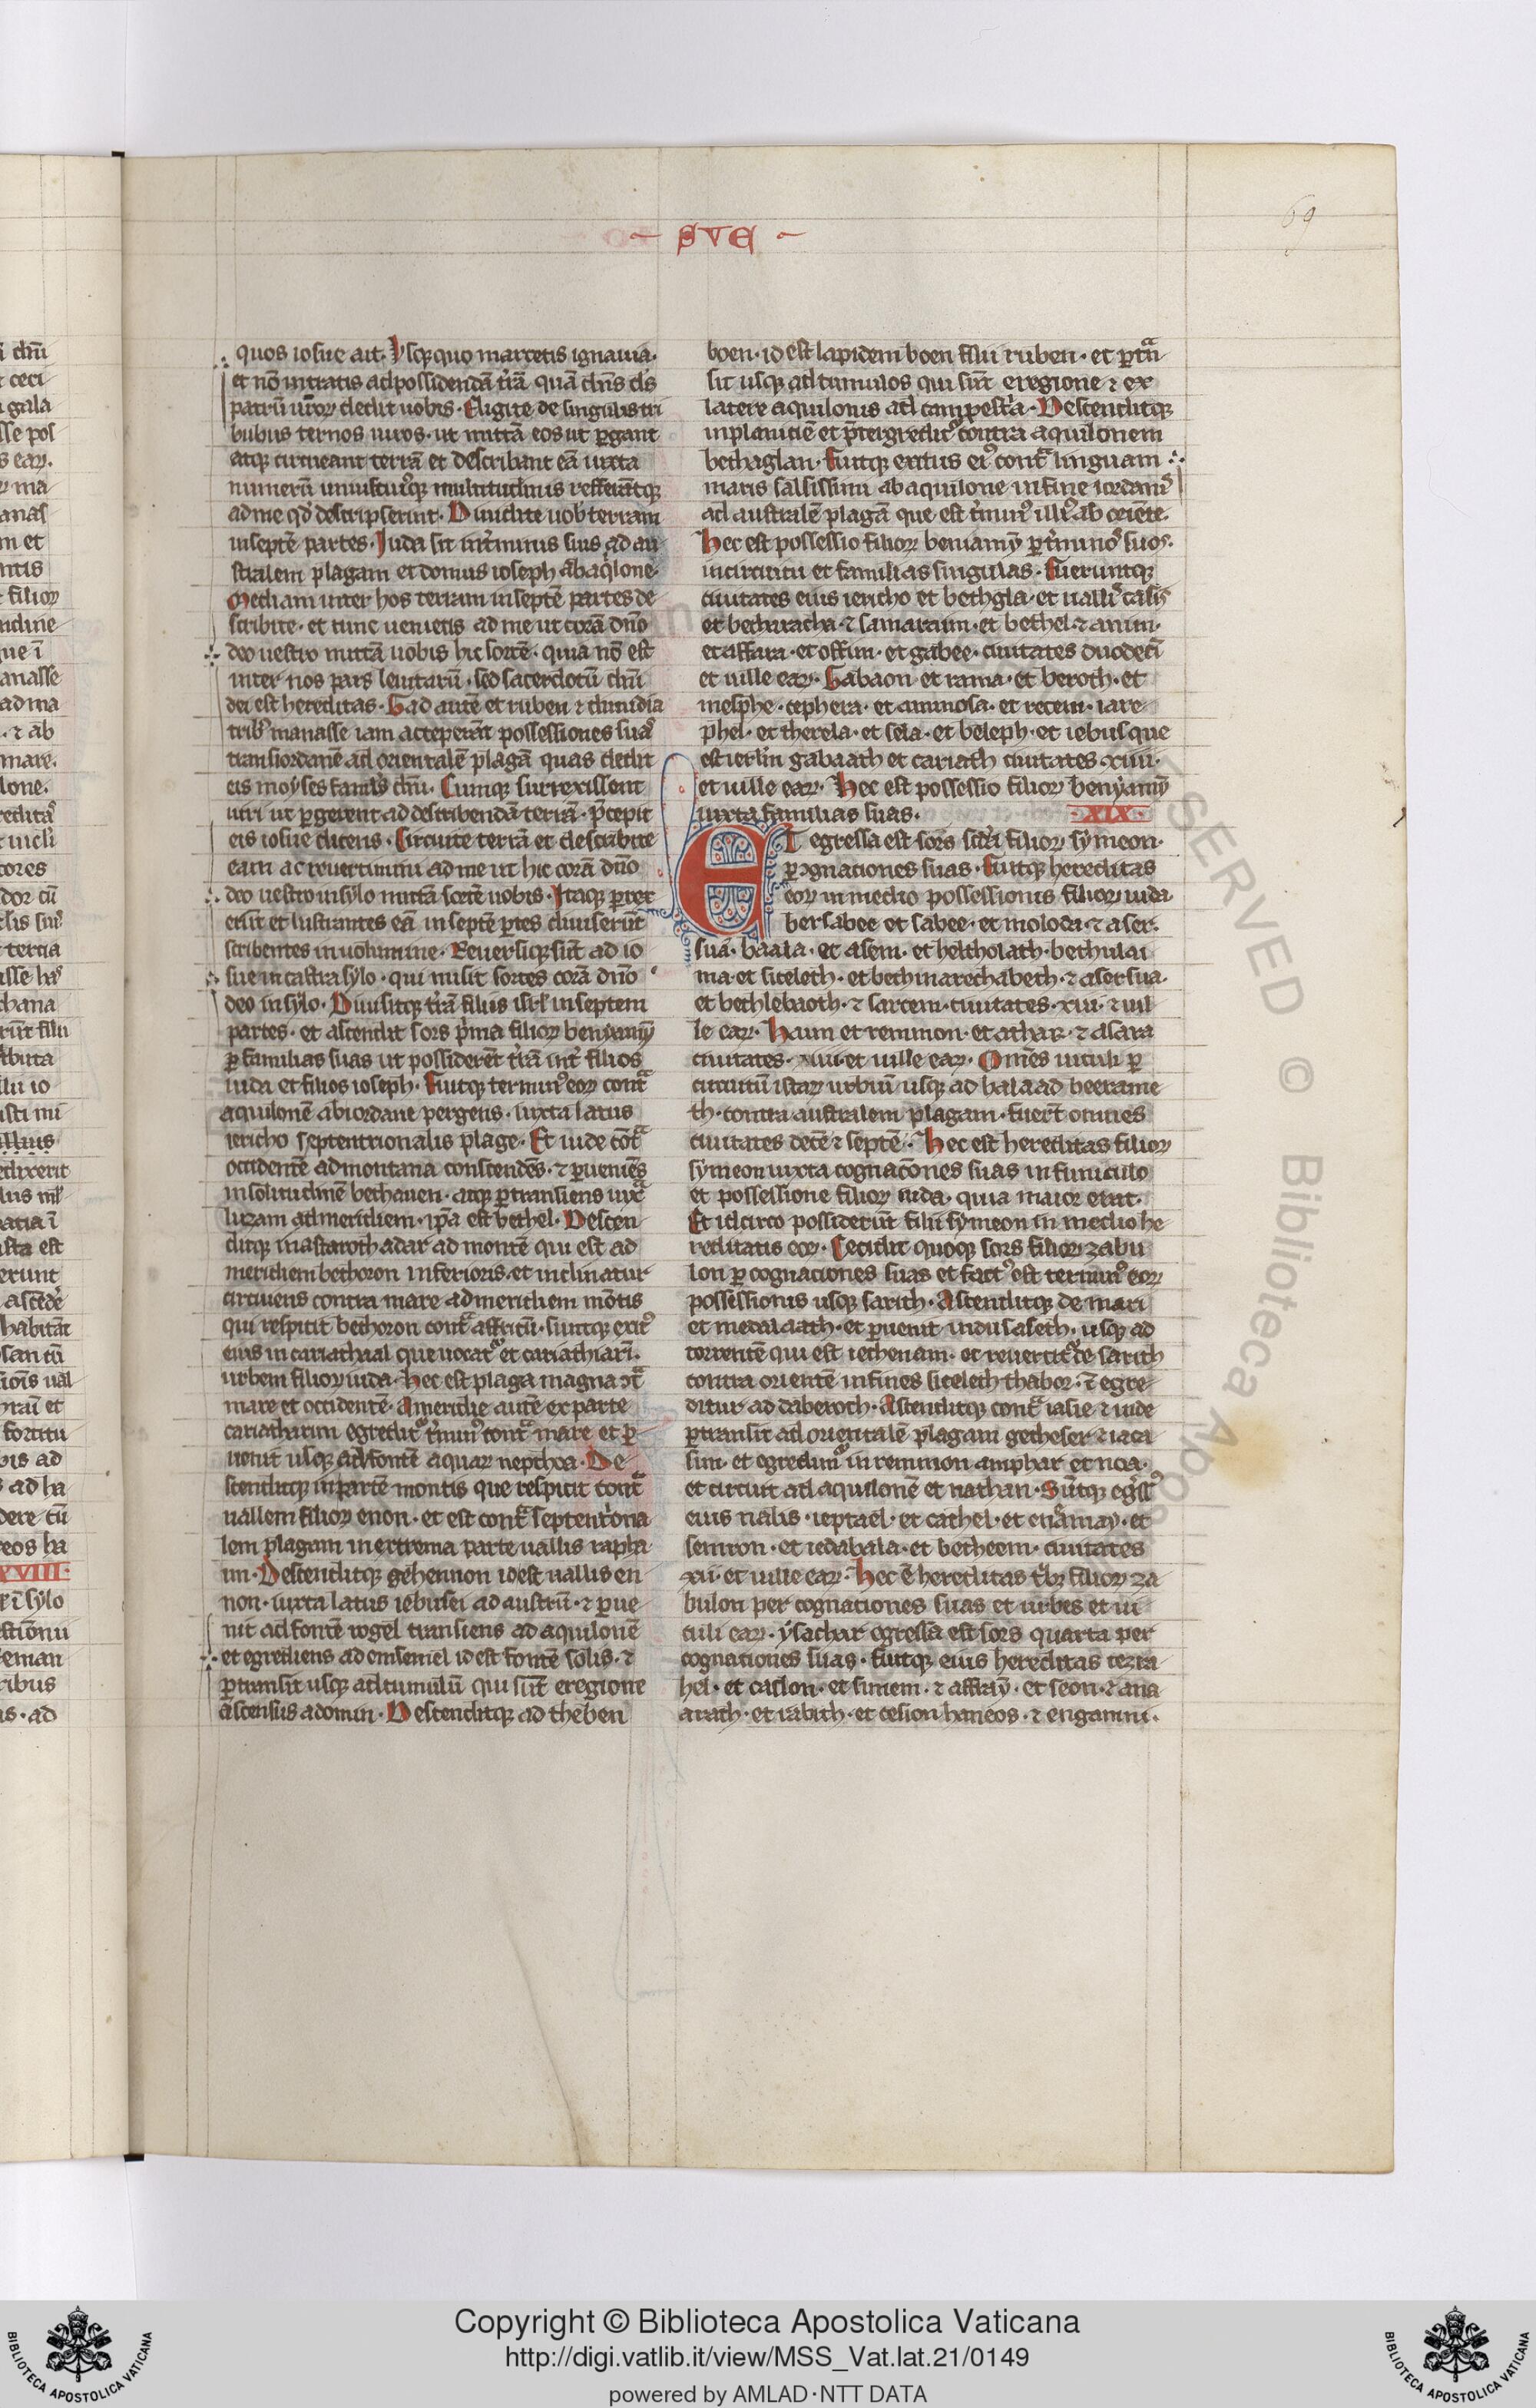 69
SVE
quos iosue ait. Vsq; quo marcetis ignauia.
et nō intratis ad possidendā t̄rā quā dn̄s d̄s
patrū ur̄oꝝ dedit uobis. Eligite de singulis tri
bubus ternos uiros. ut mittā eos ut ꝑgant
atq; circueant terrā et describant eā iuxta
numerū uniuscuiꝰq; multitudinis refferātq;
ad me qd̄ descripserint. Diuidite uob terram
in septē partes. Iuda sit in t̄minis suis ad au
stralem plagam et domus ioseph ab aq̇lone.
Mediam inter hos terram in septē partes de
scribite. et tunc uenietis ad me ut corā dn̄o
deo uestro mittā uobis hic sortē. quia nō est
inter nos pars leuitarū. sed sacerdotū dn̄i
dei est hereditas. Gad autē et ruben ⁊ dimidia
tribꝰ manasse iam acceperāt possessiones suaˢ
trans iordanē ad orientalē plagā quas dedit
eis moyses famlꝰ dn̄i. Cumque surrexissent
uiri ut ꝑgerent ad describendā terrā. p̄cepit
eis iosue dicens. Circuite terrā et describite
eam ac reuertimini ad me ut hic corā dn̄o
deo uestro in sylo mittā sortē uobis. Itaq; ꝑrex
erūt et lustrantes eā in septē ꝑtes diuiserūt
scribentes in uolumine. Reuersiq; sūt ad io
sue in castra sylo. qui misit sortes corā dn̄o
deo in sylo. Diuisitq; t̄rā filiis isrl̄ in septem
partes. et ascendit sors p̄ma filioꝝ beniamyn
ꝑ familias suas ut possiderēt t̄rā int̄ filios
iuda et filios ioseph. Fuitq; terminꝰ eoꝝ contᵃ
aquilonē ab iordane pergens. iuxta latus
iericho septentrionalis plage. Et inde cōtᵃ
occidentē ad montana conscendēs. ⁊ ꝑueniēs
in solitudinē bethauen. atq; ꝑtransiens iuxᵃ
luzam ad meridiem. ip̄a est bethel. Descen
ditq; in astaroth adar ad montē qui est ad
meridiem bethoron inferioris. et inclinatur
circuiens contra mare ad meridiem mōtis
qui respicit bethoron contᵃ affricū. suntq; exitꝰ
eius in cariathaal que uocatᵘʳ et cariathiarī.
urbem filioꝝ iuda. Hec est plaga magna ↄtᵃ
mare et occidentē. A meridie autē ex parte
cariatharim egreditᵘʳ t̄minꝰ contᵃ mare et ꝑ
uenit usq; ad fontē aquaꝝ nepthoa. De
scenditq; in partē montis que respicit contᵃ
uallem filioꝝ enon. et est contᵃ septent̄ona
lem plagam in extrema parte uallis rapha
im. Descenditq; gehennon id est uallis en
non. iuxta latus iebusei ad austrū. ⁊ ꝑue
nit ad fontē rogel transiens ad aquilonē
et egrediens ad emsemel id est fontē solis. ⁊
ꝑtransit usq; ad tumulū qui sūt eregione
ascensus adomin. Descenditq; ad theben
boen. id est lapidem boen filii ruben. et ꝑtrā
sit usq; ad tumulos qui sūt eregione ⁊ ex
latere aquilonis ad campestᵃ. Descenditq;
in planitiē et p̄tergreditᵘʳ contra aquilonem
bethaglan. Fuitq; exitus eiꝰ contᵃ linguam
maris salsissimi ab aquilone in fine iordanis
ad australē plagā que est t̄minꝰ illiꝰ ab oriēte.
Hec est possessio filioꝝ beniamȳ ꝑ t̄minoˢ suoˢ.
in circuitu et familias singulas. Fueruntq;
ciuitates eius iericho et bethgla. et uallis casis
et betharacha. ⁊ samaraim. et bethel. ⁊ auim.
et affara. et offim. et gabee. ciuitates duodecī
et uille eaꝝ. Gabaon et rama. et beroth. et
mesphe. cephera. et ammosa. et recem. iare
phel. et therela. et sela. et heleph. et iebus que
est ierl̄m gabaath et cariath ciuitates .xiiii.
et uille eaꝝ. Hec est possessio filioꝝ benyamȳ
iuxta familias suas.
.XIX.
ET egressa est sors scd̄a filioꝝ symeon.
ꝑ ↄgnationes suas. Fuitq; hereditas
eoꝝ in medio possessionis filioꝝ iuda
bersabee et sabee. et moloda. ⁊ aser.
sua. baala. et asem. et heltholath. bethulai
ma. et siceleth. et bethmarechabeth. ⁊ asersua.
et bethlebaoth. ⁊ sarcem. ciuitates .xiii. ⁊ uil
le eaꝝ. Haim et remmon. et athar. ⁊ asara
ciuitates .iiii. et uille eaꝝ. Om̄es uiculi ꝑ
circuitū istaꝝ urbiū usq; ad balaad beerame
th. contra australem plagam. fuerūt omnes
ciuitates decē ⁊ septē. Hec est hereditas filioꝝ
symeon iuxta cognacōnes suas in funiculo
et possessione filioꝝ iuda. quia maior erat.
Et idcirco possiderūt filii symeon in medio he
reditatis eoꝝ. Cecidit quoq; sors filioꝝ zabu
lon ꝑ cognaciones suas et factꝰ est terminꝰ eoꝝ
possessionis usq; sarith. Ascenditq; de mari
et medalaath. et ꝑuenit in dusaseth. usq; ad
torrentē qui est iethenam. et reuertitᵘʳ de sarith
contra orientē in fines siceleth thabor. ⁊ egre
ditur ad daberoth. Ascenditq; contᵃ iasie ⁊ inde
ꝑtransit ad orientalē plagam getheser ⁊ iaca
sim. et egreditᵘʳ in remmon amphar et noa.
et circuit ad aquilonē et nathan. Sūtq; egssꝰ
eius ualis. ieptael. et cathel. et enamay. et
semron. et iedabala. et betheem. ciuitates
xii. et uille eaꝝ. Hec ē hereditas tbꝰ filioꝝ za
bulon per cognationes suas et urbes et ui
culi eaꝝ. ysachar egressa est sors quarta per
cognationes suas. fuitq; eius hereditas iezra
hel. et caslon. et sunem. ⁊ affray. et seon. ⁊ ana
arath. et rabith. et cesion haneos. ⁊ engamni.
Copyright © Biblioteca Apostolica Vaticana
http://digi.vatlib.it/view/MSS_Vat.lat.21/0149
powered by AMLAD·NTT DATA
BIBLIOTECA APOSTOLICA VATICANA
BIBLIOTECA APOSTOLICA VATICANA